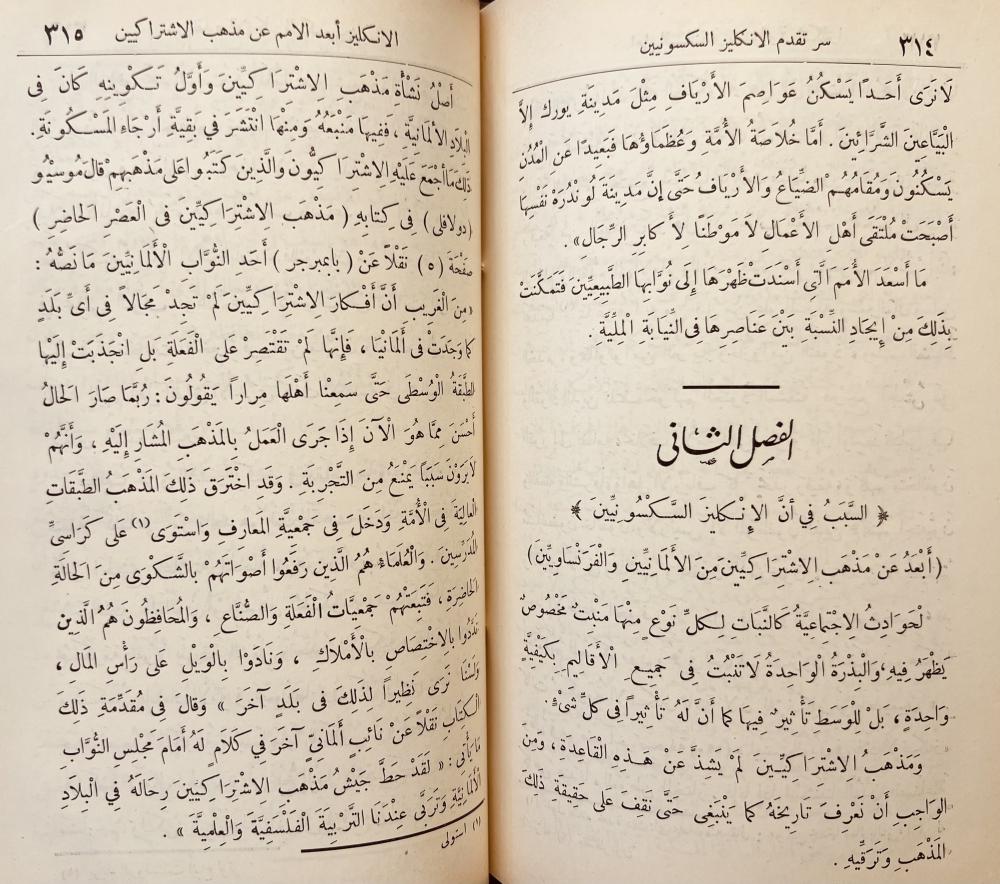 ٣١٤ سر تقدم الانكليز السكسونيين
لَا نَرَى أَحَداً يَسْكُنُ عَوَاصِمَ الأَرْيَافِ مِثْلَ مَدِينَةِ يورك إِلَّا
البَيَّاعِينَ الشَّرَّائِينَ . أَمَّا خُلَاصَةُ الأُمَّةِ وَعُظَمَاؤُهَا فَبَعِيداً عَنِ المُدُنِ
يَسْكُنُونَ وَمُقَامُهُمْ الضِّيَاعُ وَالأَرْيَافُ حَتَّى إِنَّ مَدِينَةَ لُونْدُرَةَ نَفْسِهَا
أَصْبَحَتْ مُلْتَقَى أَهْلِ الأَعْمَالِ لَا مَوْطَنًا لِأَكَابِرِ الرِّجَالِ» .
مَا أَسْعَدَ الأُمَمَ الَّتِى أَسْنَدَتْ ظَهْرَهَا إِلَى نُوَّابِهَا الطَّبِيعِيِّينَ فَتَمَكَّنَتْ
بِذَلِكَ مِنْ إِيجَادِ النِّسْبَةِ بَيْنَ عَنَاصِرِهَا فِى النِّيَابَةِ المِلِّيَّةِ .
الفصل الثانى
﴿ السَّبَبُ فِي أَنَّ الإِنْكلِيزَ السَّكْسُونِيِّينَ ﴾
(أَبْعَدُ عَنْ مَذْهَبِ الِاشْتِرَاكِيِّينَ مِنَ الأَلْمَانِيِّينَ وَالْفَرَنْسَاوِيِّينَ)
لْحَوَادِثُ الِاجْتِمَاعِيَّةُ كَالنَّبَاتِ لِكلِّ نَوْعٍ مِنْهَا مَنْبِتٌ مَخْصُوصٌ
يَظْهَرُ فِيهِ، وَالْبِذْرَةُ الْوَاحِدَةُ لَا تَنْبُتُ فِى جَمِيعِ الْأَقَالِيمِ بِكَيْفِيَّةٍ
وَاحِدَةٍ ، بَلْ لِلْوَسَطِ تَأْثِيرٌ فِيهَا كَمَا أَنَّ لَهُ تَأْثِيراً فِى كلِّ شَىْءٍ .
وَمَذْهَبُ الِاشْتِرَاكِيِّينَ لَمْ يَشِذَّ عَنْ هَذِهِ القَاعِدَةِ ، وَمِنَ
الوَاجِبِ أَنْ نَعْرِفَ تَارِيخَهُ كَمَا يَنْبَغِى حَتَّى نَقِفَ عَلَى حَقِيقَةِ ذَلِكَ
المَذْهَبِ وَتَرَقِّيهِ .
الانكليز أبعد الامم عن مذهب الاشتراكيين ٣١٥
أَصْلُ نَشْأَةِ مَذْهَبِ الِاشْتِرَاكِيِّينَ وَأَوَّلُ تَكْوِينِهِ كَانَ فِى
البِلَادِ الأَلْمَانِيَّةِ ، فَفِيهَا مَنْبَعُهُ وَمِنْهَا انْتَشَرَ فِي بَقِيَّةِ أَرْجَاءِ المَسْكُونَةِ .
ذَلِكَ مَا أَجْمَعَ عَلَيْهِ الِاشْتِرَاكِيُّونَ وَالَّذِينَ كَتَبُوا عَلَى مَذْهَبِهِمْ قَالَ مُوسيُو
( دولافلى ) فِى كِتَابِهِ ( مَذْهَبِ الِاشْتِرَاكِيِّينَ فى الْعَصْرِ الْحَاضِرِ )
صَفْحَةَ (٥) نَقْلاً عَنْ ( بابمبرجر ) أَحَدِ النُّوَّابِ الْأَلْمَانِيِّينَ مَا نَصُّهُ :
«مِنَ الْغَرِيبِ أَنَّ أَفْكَارَ الِاشْتِرَاكِيِّينَ لَمْ تَجِدْ مَجَالاً فِى أَىِّ بَلَدٍ
كَمَا وَجَدَتْ فِى أَلْمَانْيَا ، فَإِنَّهَا لَمْ تَقْتَصِرْ عَلَى الْفَعَلَةِ بَلِ انْجَذَبَتْ إِلَيْهَا
الطَّبَقَةُ الْوُسْطَى حَتَّى سَمِعْنَا أَهْلَهَا مِراراً يَقُولُونَ : رُبَّمَا صَارَ الْحَالُ
أَحْسَنَ مِمَّا هُوَ الْآنَ إِذَا جَرَى الْعَمَلُ بِالْمَذْهَبِ الْمُشَارِ إِلَيْهِ ، وَأَنَّهُمْ
لَا يَرَوْنَ سَبَبًا يَمْنَعُ مِنَ التَّجْرِبَةِ . وَقَدِ اخْتَرَقَ ذَلِكَ الْمَذْهَبُ الطَّبَقَاتِ
العَالِيَةَ فِى الْأُمَّةِ وَدَخَلَ فِى جَمْعِيَّةِ المَعَارِفِ وَاسْتَوَى (١) عَلَى كَرَاسِىِّ
المُدَرِّسِينَ . وَالْعُلَمَاءُ هُمُ الَّذِينَ رَفَعُوا أَصْوَاتَهُمْ بِالشَّكْوَى مِنَ الْحَالَةِ
الحَاضِرَةِ ، فَتَبِعَتْهُمْ جَمْعِيَّاتُ الْفَعَلَةِ وَالصُّنَّاعِ ، وَالْمُحَافِظُونَ هُمُ الَّذِينَ
نَدَّدُوا بِالِاخْتِصَاصِ بِالْأَمْلَاكِ ، وَنَادَوْا بِالْوَيْلِ عَلَى رَأْسِ المَالِ ،
وَلَسْنَا نَرَى نَظِيراً لِذَلِكَ فى بَلَدٍ آخَرَ » وَقَالَ فِى مُقَدِّمَةِ ذَلِكَ
الْكِتَابِ نَقْلاً عَنْ نَائِبٍ أَلْمَانِيٍّ آخَرَ فِي كَلَامٍ لَهُ أَمَامَ مَجْلِسِ النُّوَّابِ
مَا يَأْتِى : « لَقَدْ حَطَّ جَيْشُ مَذْهَبِ الِاشْتِرَاكِيِّينَ رِحَالَهُ فِى الْبِلَادِ
الْأَلْمَانِيَّةِ وَتَرَبَّى عِنْدَنَا التَّرْبِيَةَ الْفَلْسَفِيَّةَ وَالْعِلْمِيَّةَ » .
(١) استولى .